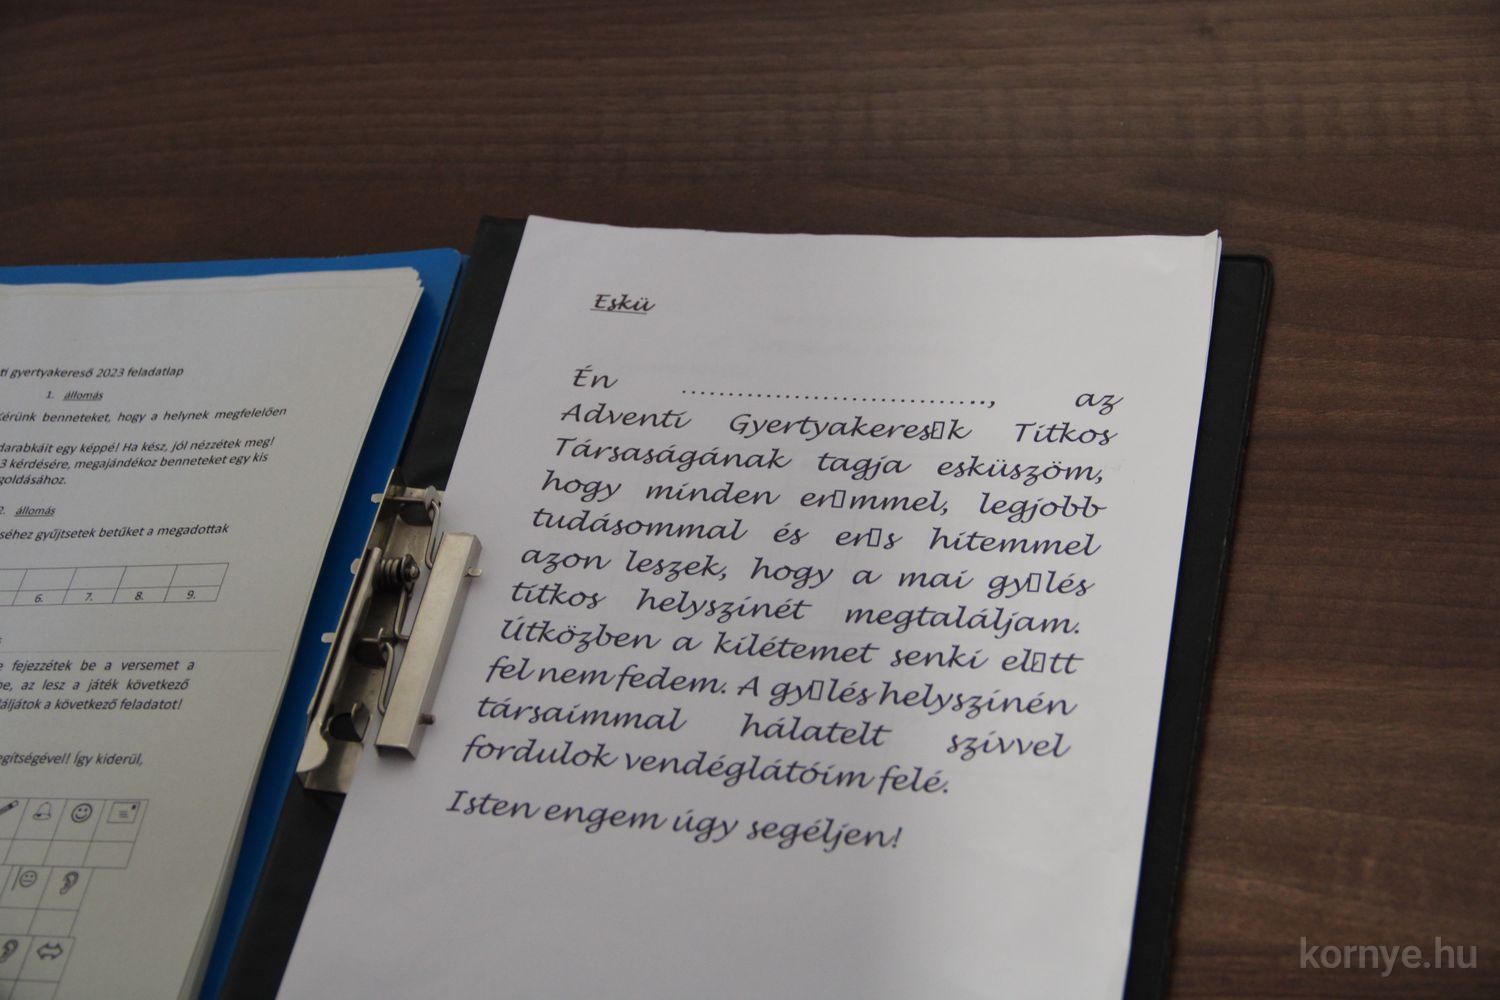 ti gyertyakereső 2023 feladatlap
1. állomás
Kérünk benneteket, hogy a helynek megfelelően
darabkáit egy képpé! Ha kész, jól nézzétek meg!
3 kérdésére, megajándékoz benneteket egy kis
goldásához.
2. állomás
séhez gyűjtsetek betűket a megadottak
6. 7. 8. 9.
e fejezzétek be a versemet a
be, az lesz a játék következő
láljátok a következő feladatot!
egítségével! Így kiderül,
Eskü
Én .................................., az
Adventi Gyertyakeres▯k Titkos
Társaságának tagja esküszöm,
hogy minden er▯mmel, legjobb
tudásommal és er▯s hitemmel
azon leszek, hogy a mai gy▯lés
titkos helyszínét megtaláljam.
Útközben a kilétemet senki el▯tt
fel nem fedem. A gy▯lés helyszínén
társaimmal hálatelt szívvel
fordulok vendéglátóim felé.
Isten engem úgy segéljen!
kornye.hu